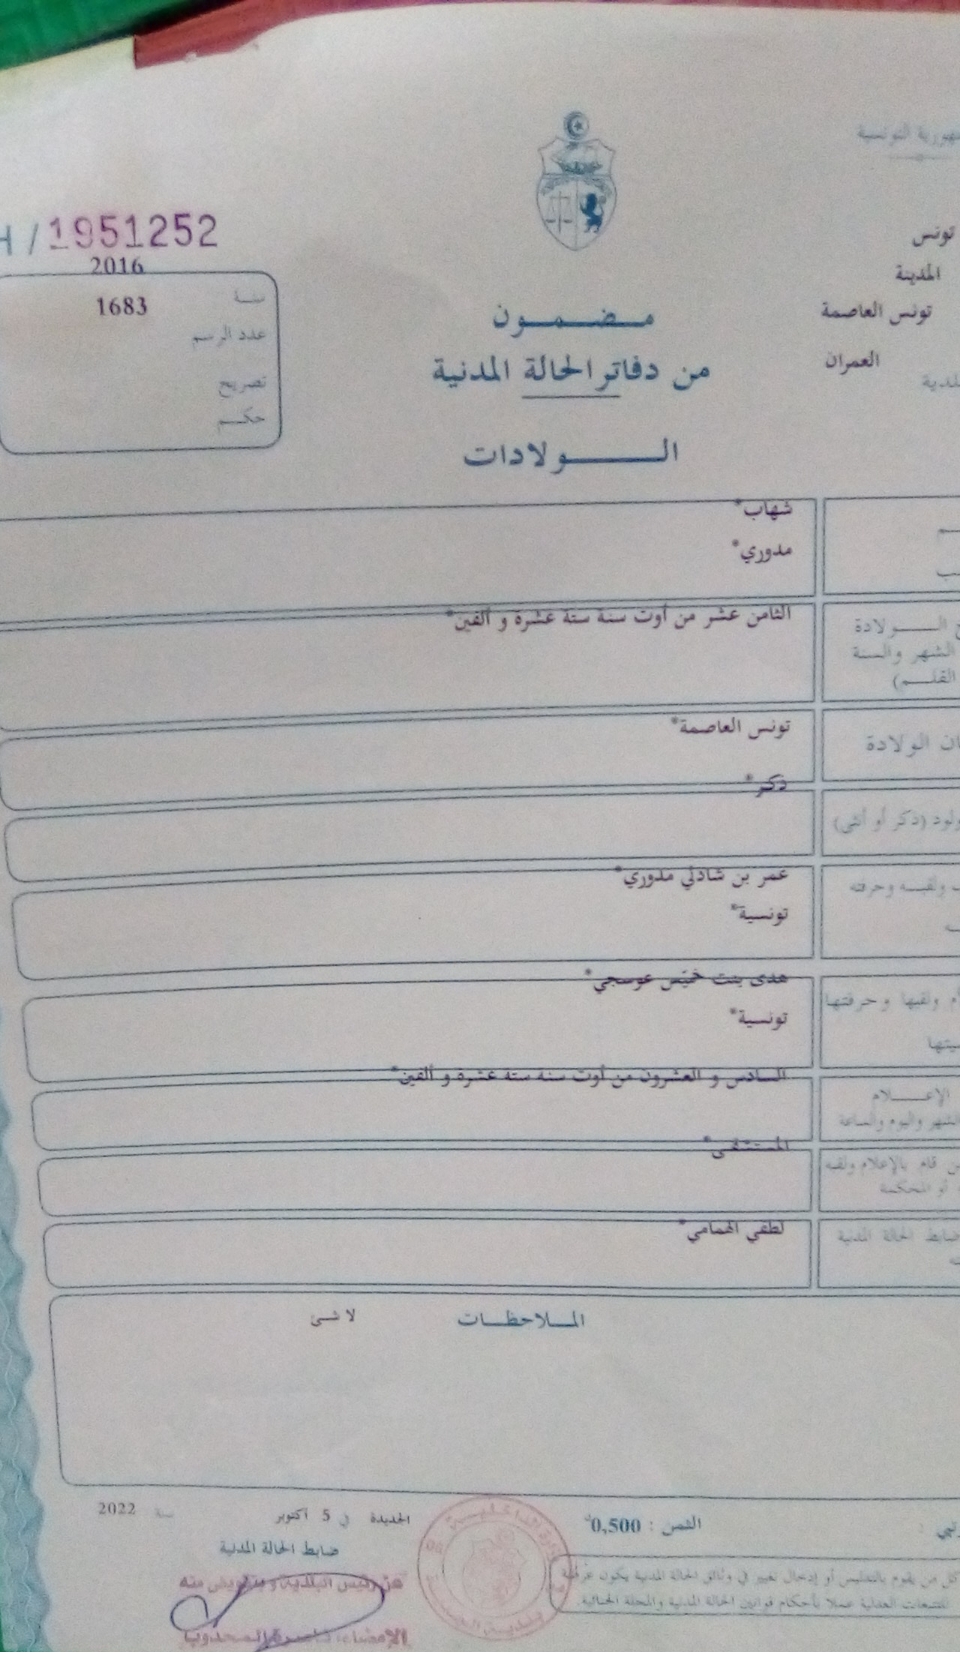 التونسية
تونس
المدينة
تونس العاصمة
العمران
H / 1951252
2016
سنة
1683
عدد الرسم
تصريح
حكم
مضمون
من دفاتر الحالة المدنية
الولادات
شهاب*
مدوري*
الولادة
الثامن عشر من أوت سنة ستة عشرة و ألفين*
الشهر والسنة
القلم)
الولادة
تونس العاصمة*
(ذكر أو أنثى)
ذكر*
ولقبه وحرفته
عمر بن شاذلي مدوري*
تونسية*
ولقبها وحرفتها
هدى بنت خميّس عوسجي*
تونسية*
الإعلام
السادس و العشرون من أوت سنة ستة عشرة و ألفين*
والشهر واليوم والساعة
قام بالإعلام ولقبه
المستشفى*
أو المحكمة
ضابط الحالة المدنية
لطفي الهمامي*
الملاحظات
لا شئ
الثمن : 0,500
الجديدة في 5 أكتوبر سنة 2022
ضابط الحالة المدنية
عن رئيس البلدية و بتفويض منه
كل من يقوم بالتدليس أو إدخال تغيير في وثائق الحالة المدنية يكون عرضة
للتتبعات العدلية عملا بأحكام قوانين الحالة المدنية والمجلة الجنائية.